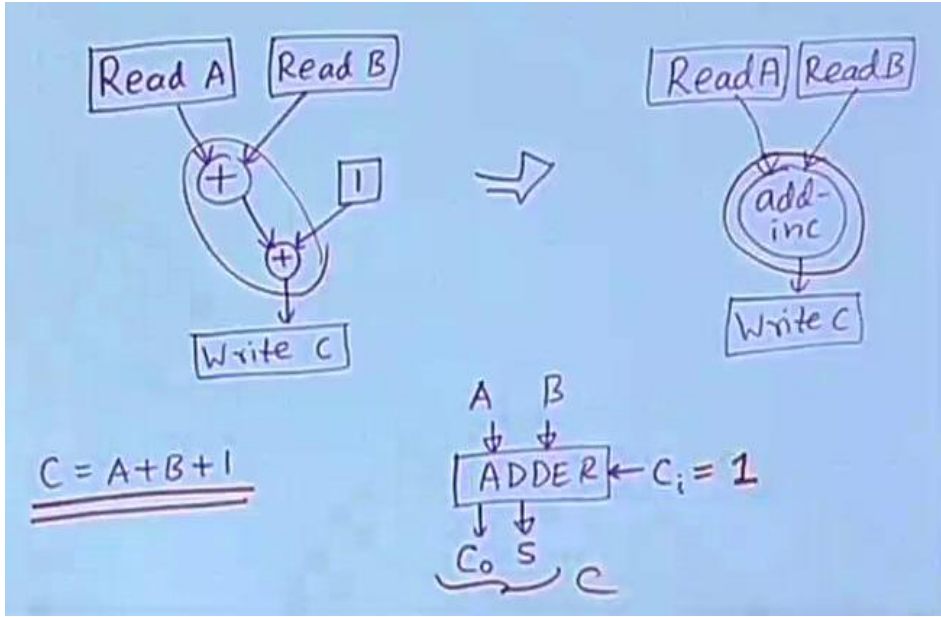 Read A
Read B
+
1
+
Write C
Read A
Read B
add-
inc
Write C
C = A+B+1
A B
ADDER ← Ci = 1
Co S
C